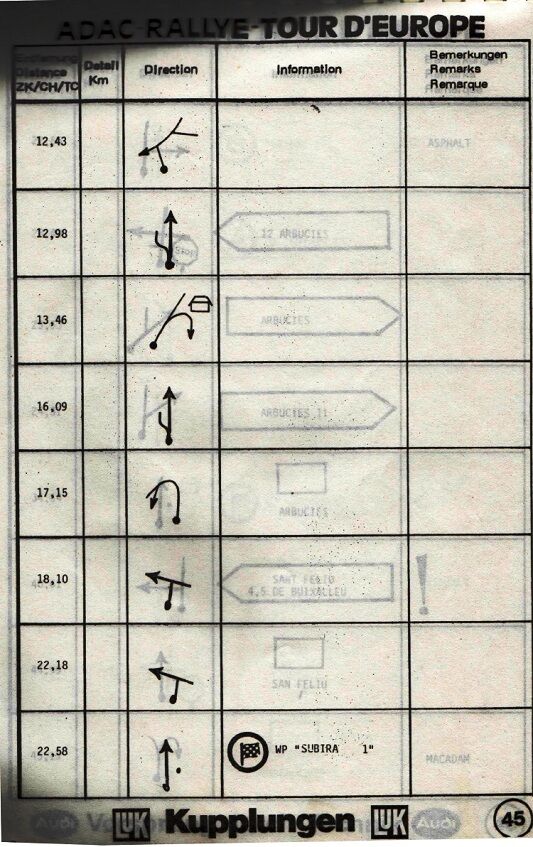 ADAC-RALLYE-TOUR D'EUROPE
Entfernung
Distance
ZK/CH/TC
Detail
Km
Direction
Information
Bemerkungen
Remarks
Remarque
12,43
ASPHALT
12,98
Stop
12 ARBUCIES
13,46
ARBUCIES
16,09
ARBUCIES 11
17,15
ARBUCIES
18,10
SANT FELIU
4,5 DE BUIXALLEU
!
22,18
SAN FELIU
22,58
WP "SUBIRA 1"
MACADAM
Audi
LUK Kupplungen LUK
Audi
45